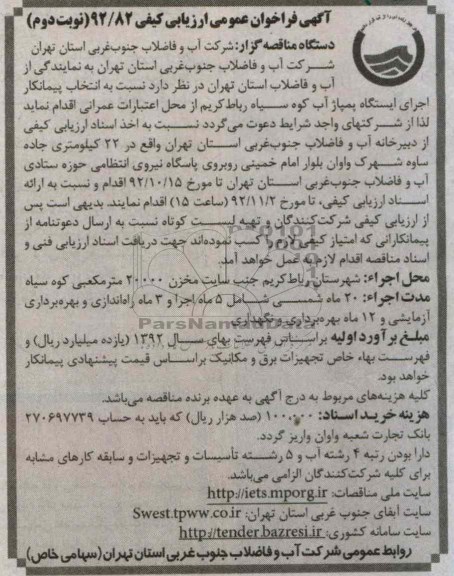 آگهی فراخوان عمومی ارزیابی کیفی ۹۲/۸۲ (نوبت دوم)
دستگاه مناقصه گزار: شرکت آب و فاضلاب جنوب‌غربی استان تهران
شرکت آب و فاضلاب جنوب‌غربی استان تهران به نمایندگی از
آب و فاضلاب استان تهران در نظر دارد نسبت به انتخاب پیمانکار
اجرای ایستگاه پمپاژ آب کوه سیاه رباط‌کریم از محل اعتبارات عمرانی اقدام نماید
لذا از شرکتهای واجد شرایط دعوت می‌گردد نسبت به اخذ اسناد ارزیابی کیفی
از دبیرخانه آب و فاضلاب جنوب‌غربی استان تهران واقع در ۲۲ کیلومتری جاده
ساوه شهرک واوان بلوار امام خمینی روبروی پاسگاه نیروی انتظامی حوزه ستادی
آب و فاضلاب جنوب‌غربی استان تهران تا مورخ ۹۲/۱۰/۱۵ اقدام و نسبت به ارائه
اسناد ارزیابی کیفی، تا مورخ ۹۲/۱۱/۲ (ساعت ۱۵) اقدام نمایند. بدیهی است پس
از ارزیابی کیفی شرکت‌کنندگان و تهیه لیست کوتاه نسبت به ارسال دعوتنامه از
پیمانکارانی که امتیاز کیفی لازم را کسب نموده‌اند جهت دریافت اسناد ارزیابی فنی و
اسناد مناقصه اقدام لازم به عمل خواهد آمد.
محل اجراء: شهرستان رباط‌کریم جنب سایت مخزن ۲۰۰۰۰ مترمکعبی کوه سیاه
مدت اجراء: ۲۰ ماه شمسی شامل ۵ ماه اجرا و ۳ ماه راه‌اندازی و بهره‌برداری
آزمایشی و ۱۲ ماه بهره‌برداری و نگهداری
مبلغ برآورد اولیه براساس فهرست بهای سال ۱۳۹۲ (یازده میلیارد ریال) و
فهرست بهاء خاص تجهیزات برق و مکانیک براساس قیمت پیشنهادی پیمانکار
خواهد بود.
کلیه هزینه‌های مربوط به درج آگهی به عهده برنده مناقصه می‌باشد.
هزینه خرید اسناد: ۱۰۰،۰۰۰ (صد هزار ریال) که باید به حساب ۲۷۰۶۹۷۷۳۹
بانک تجارت شعبه واوان واریز گردد.
دارا بودن رتبه ۴ رشته آب و ۵ رشته تأسیسات و تجهیزات و سابقه کارهای مشابه
برای کلیه شرکت‌کنندگان الزامی می‌باشد.
سایت ملی مناقصات: http://iets.mporg.ir
سایت آبفای جنوب غربی استان تهران: Swest.tpww.co.ir
سایت سامانه کشوری: http://tender.bazresi.ir
روابط عمومی شرکت آب و فاضلاب جنوب غربی استان تهران (سهامی خاص)
ParsNamadData